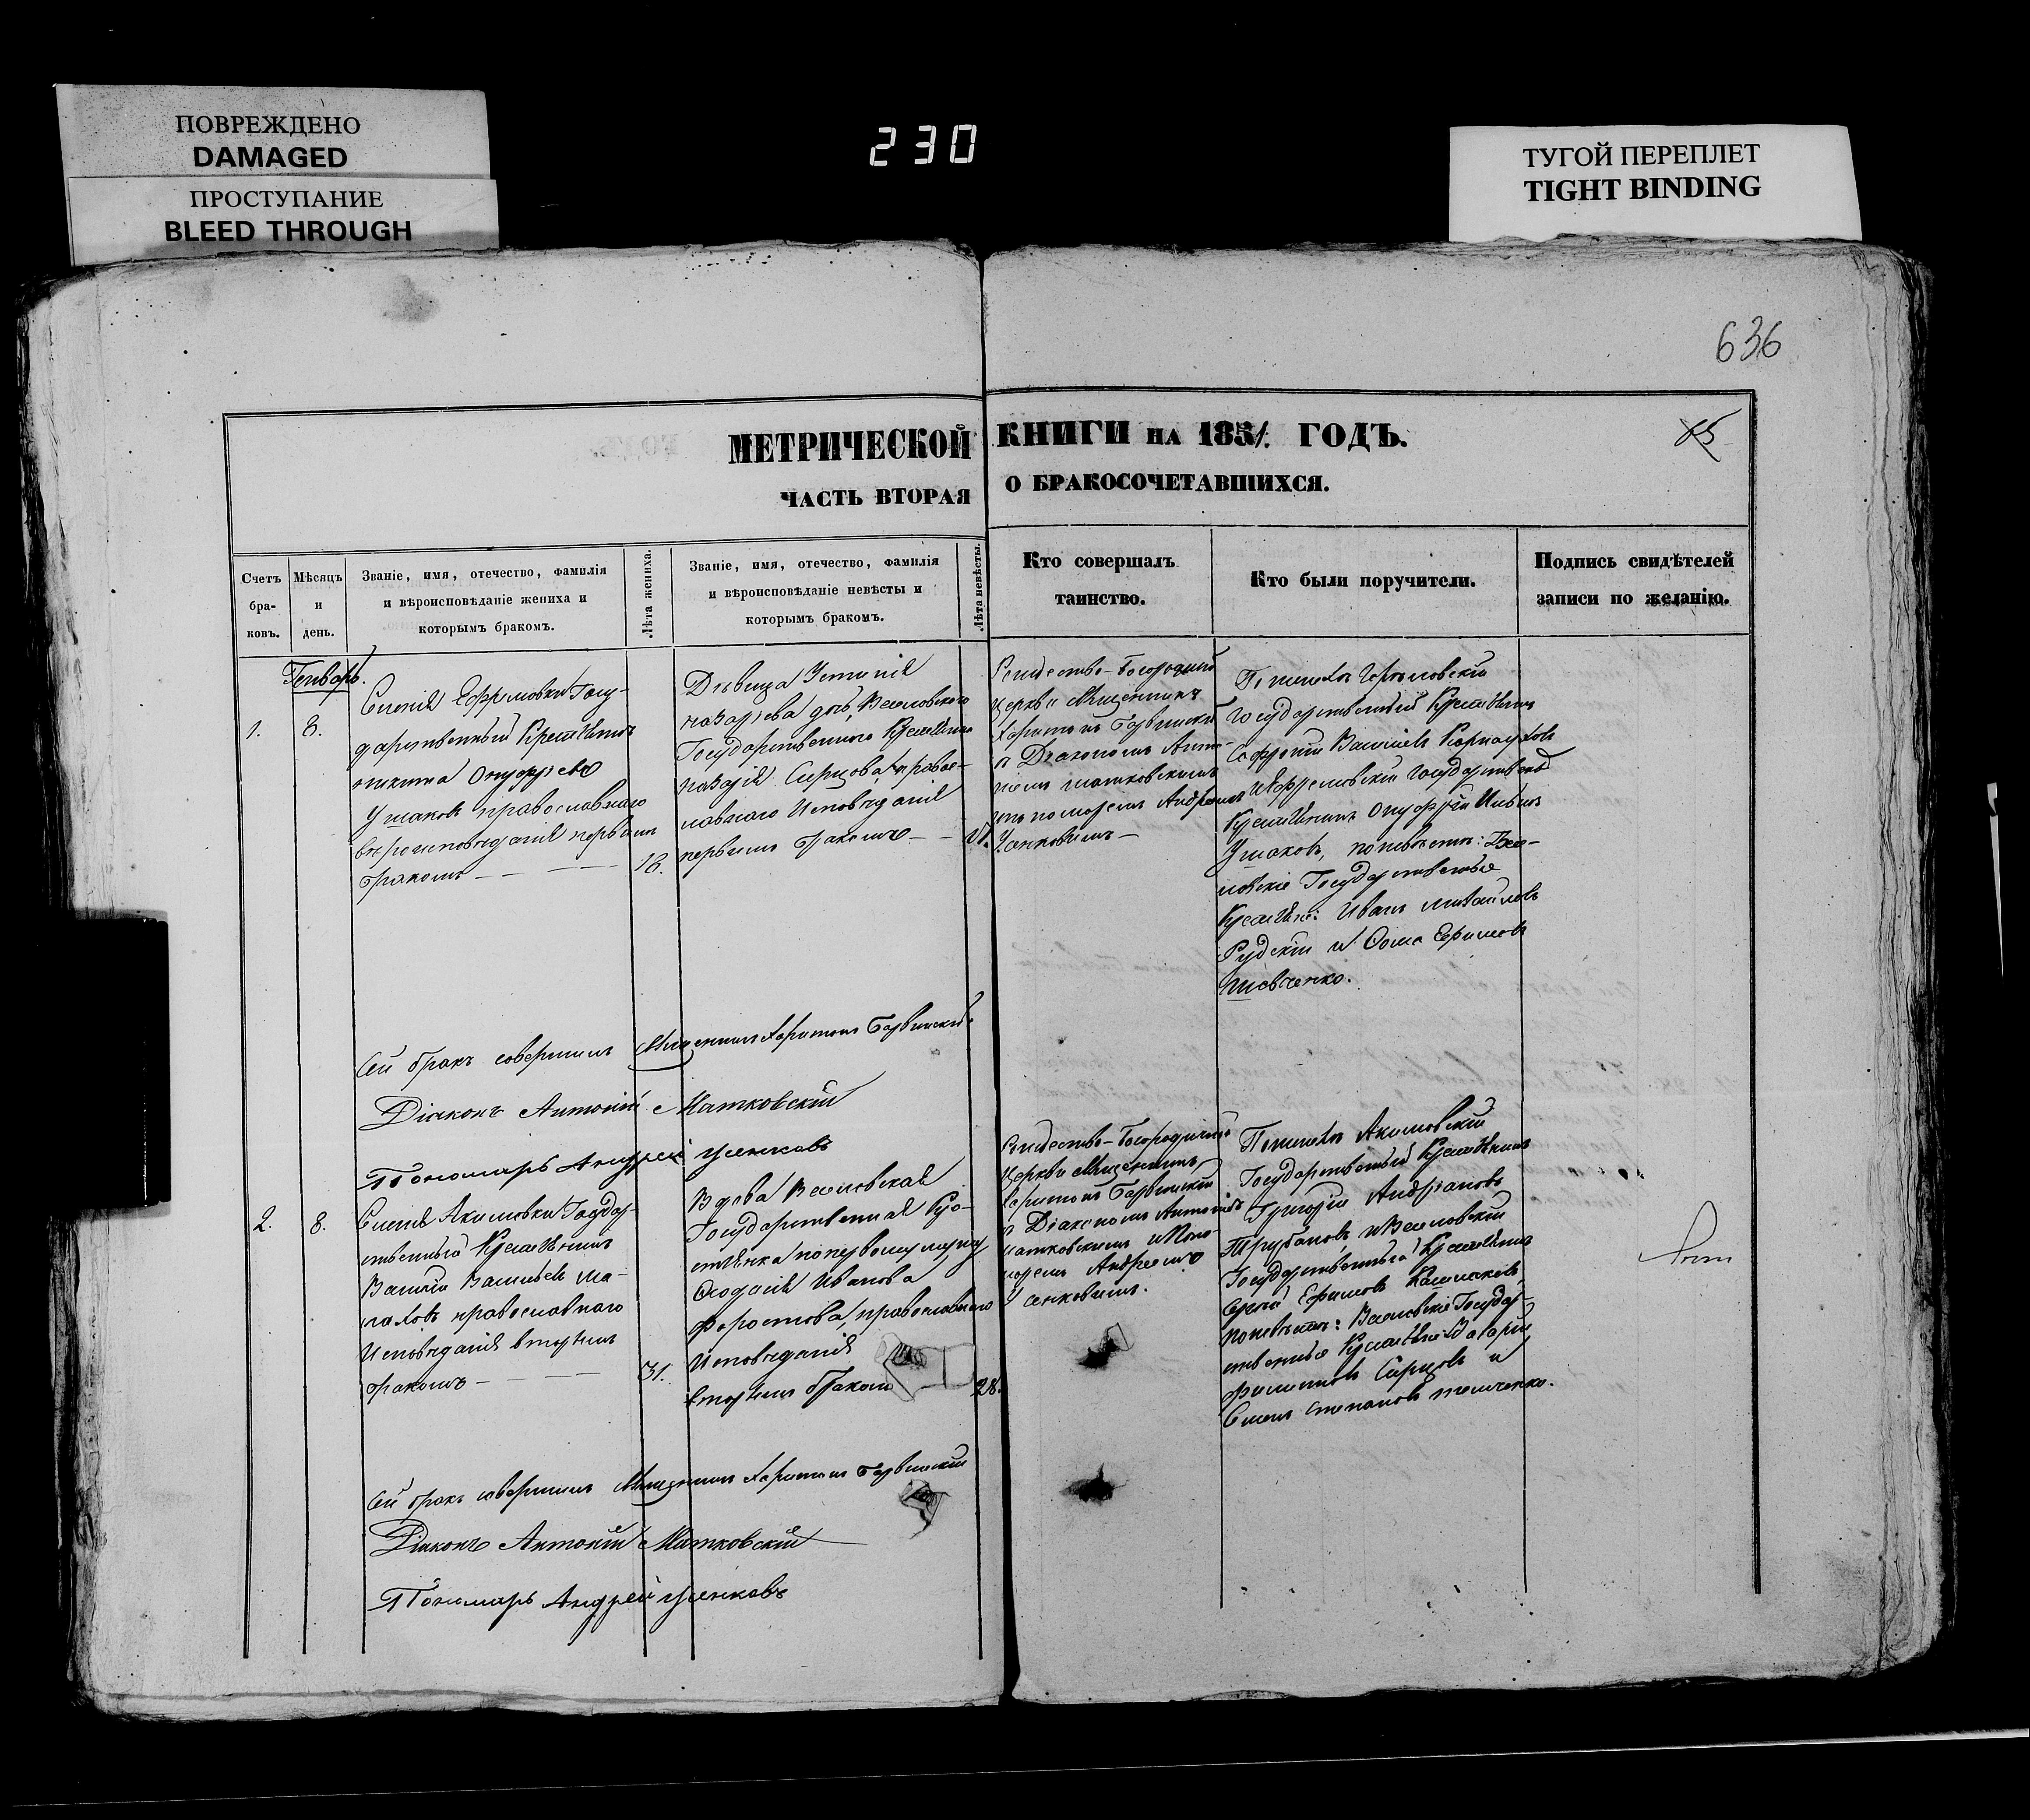 ПОВРЕЖДЕНО
DAMAGED
ПРОСТУПАНИЕ
BLEED THROUGH
230
ТУГОЙ ПЕРЕПЛЕТ
TIGHT BINDING
636
МЕТРИЧЕСКОЙ КНИГИ НА 1851. ГОДЪ.
ЧАСТЬ ВТОРАЯ О БРАКОСОЧЕТАВШИХСЯ.
Счетъ бра-ковъ.
Мѣсяцъ и день.
Званіе, имя, отечество, фамилія
и вѣроисповѣданіе жениха и
которымъ бракомъ.
Лѣта жениха.
Званіе, имя, отечество, фамилія
и вѣроисповѣданіе невѣсты и
которымъ бракомъ.
Лѣта невѣсты.
Кто совершалъ
таинство.
Кто были поручители.
Подпись свидѣтелей
записи по желанію.
Генварь.
1.
8.
Ефремовки Госу-
дарственный Крестьянинъ
никита Онуфріевъ
Ушаковъ православнаго
вероисповеданія первымъ
бракомъ
18.
Дѣвица Устинія
назарьева дочь, Веселовского
Государственного Крестьянина
назарія Сирцова, право-
славнаго Исповѣданія
первымъ бракомъ
Рождество-Богородичной
церкви Священникъ
Харитонъ Барвинскій
Діакономъ Анто-
ніемъ матковскимъ
пономаремъ Андреемъ
Усенковымъ
Государственный Крестьянинъ
Софроній Васильевъ
Ефремовскій Государственный
Крестьянинъ Онуфрій Ильинъ
Ушаковъ, по невѣстѣ: Весе-
ловскіе Государственные
Крестьяне: Иванъ михайловъ
Рудскій и Фома Ефимовъ
Шевченко.
Сей бракъ совершилъ Священникъ Харитонъ Барвинскій
Діаконъ Антоній Матковскій
Пономарь Андрей Усенковъ
2.
8.
Акимовки Государ-
ственный Крестьянинъ
Василій Васильевъ Ма-
лаховъ православнаго
Исповѣданія вторымъ
бракомъ
31.
Вдова Веселовская
Государственная Кре-
стьянка по первому мужу
Феодосія Иванова
форостова, православнаго
Исповѣданія
вторымъ бракомъ
28.
Рождество-Богородичной
Церкви Священникъ
Харитонъ Барвинскій
Діакономъ Антоніемъ
матковскимъ и Поно-
маремъ Андреемъ
Усенковымъ.
По женихѣ Акимовскій
Государственный Крестьянинъ
Григорій Андріановъ
и Веселовскій
Государственный Крестьянинъ
Сергій Ефимовъ
по невѣстѣ: Веселовскіе Государ-
ственные Крестьяне: Захарій
филиповъ Сирцовъ и
Семенъ Степановъ
Сей бракъ совершилъ Священникъ Харитонъ Барвинскій
Діаконъ Антоній Матковскій
Пономарь Андрей Усенковъ